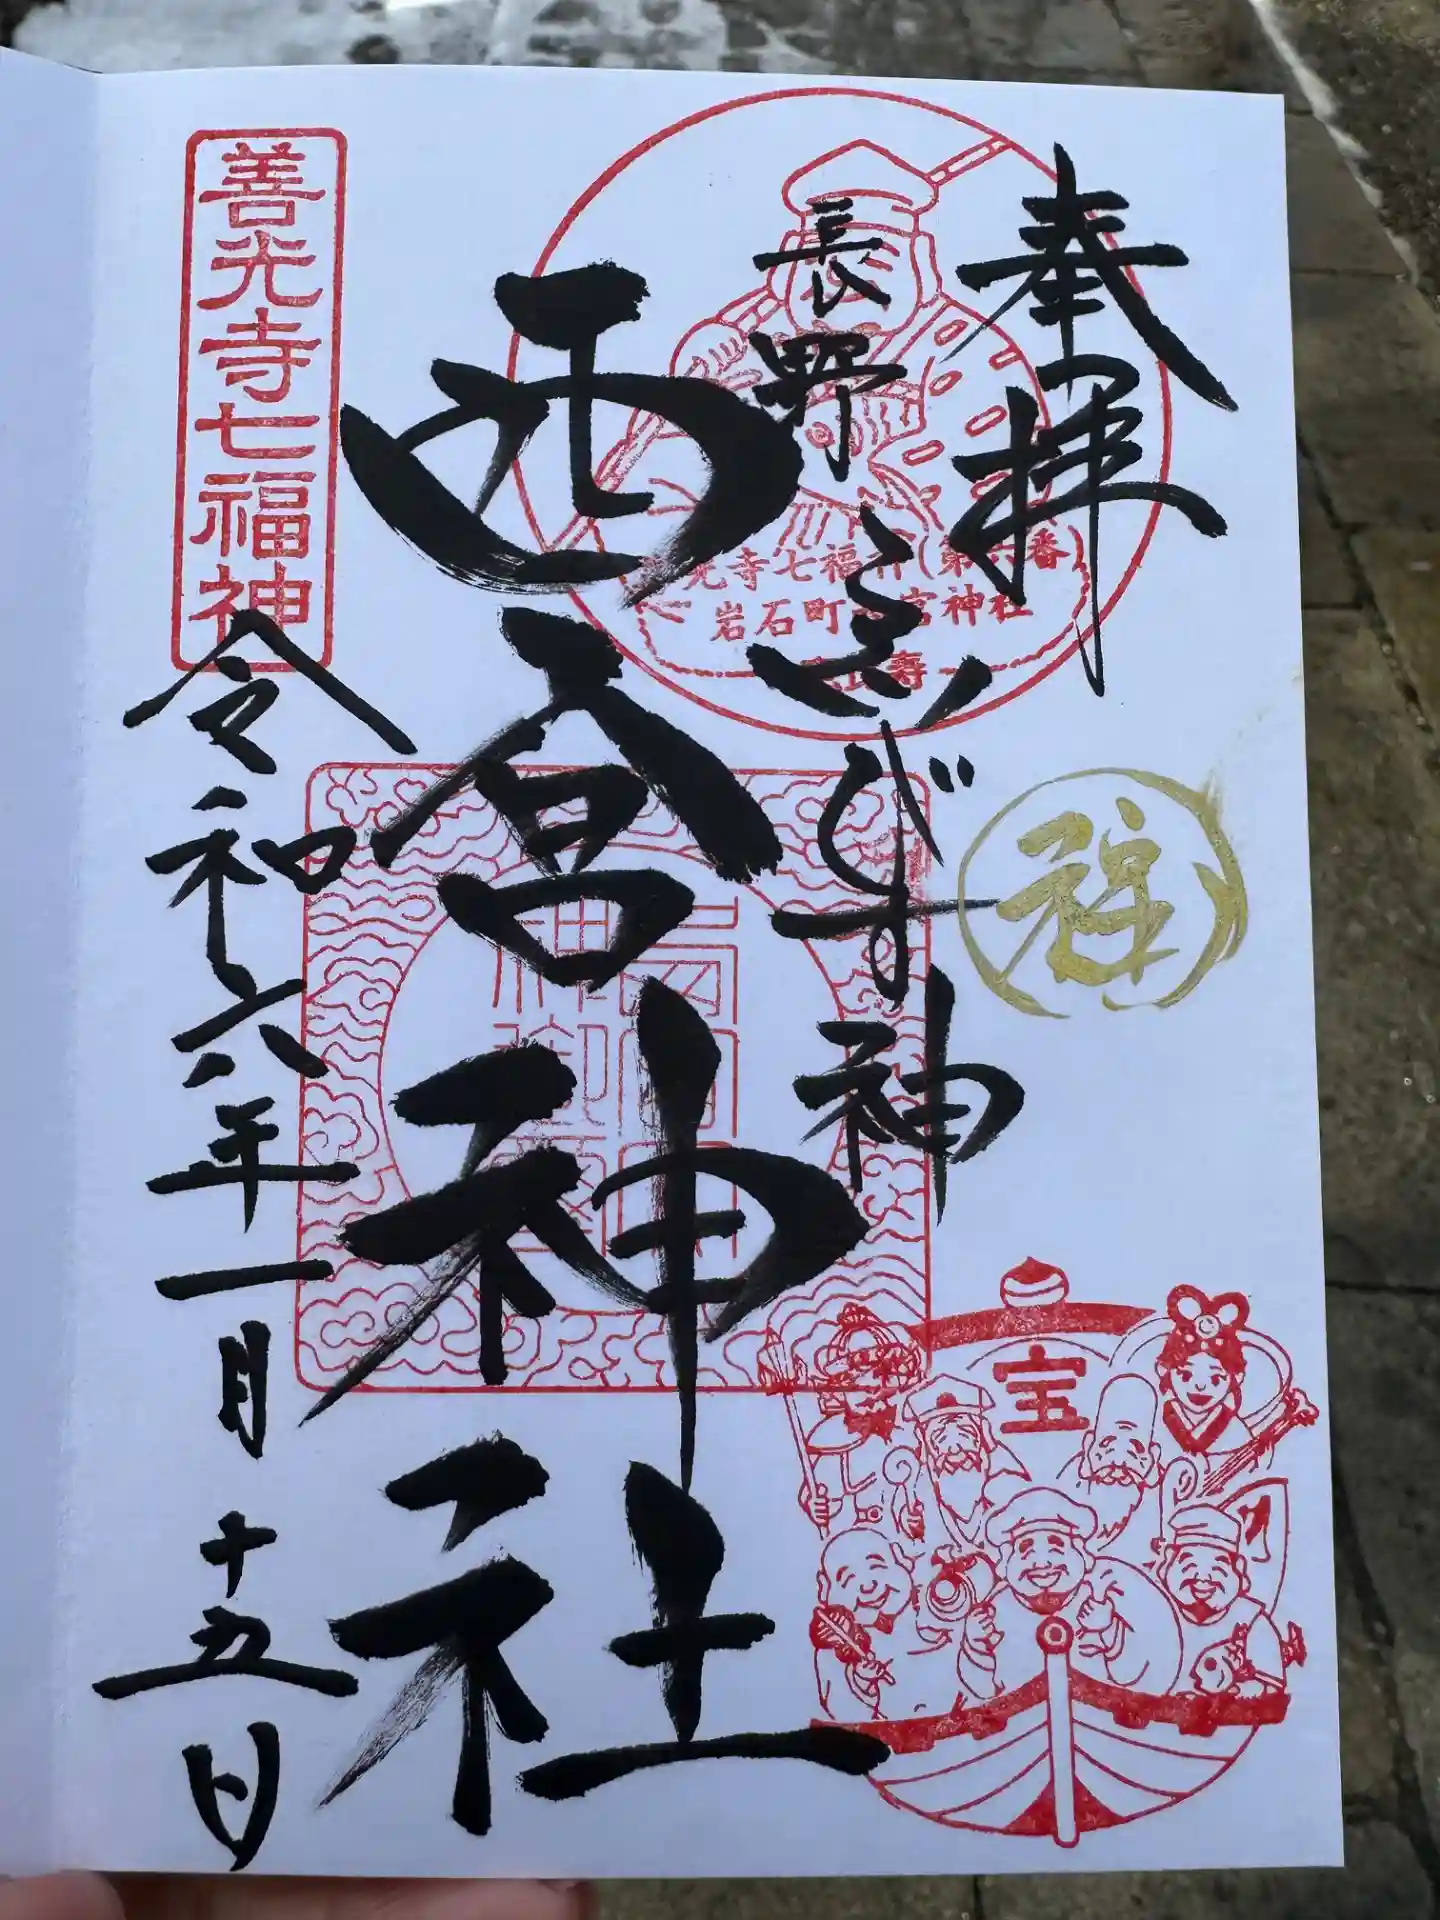 奉拝
長野ゑびす神
西宮神社
令和六年一月十五日
善光寺七福神
光寺七福神(第六番)
岩石町 宮神社
寿
祥
宝